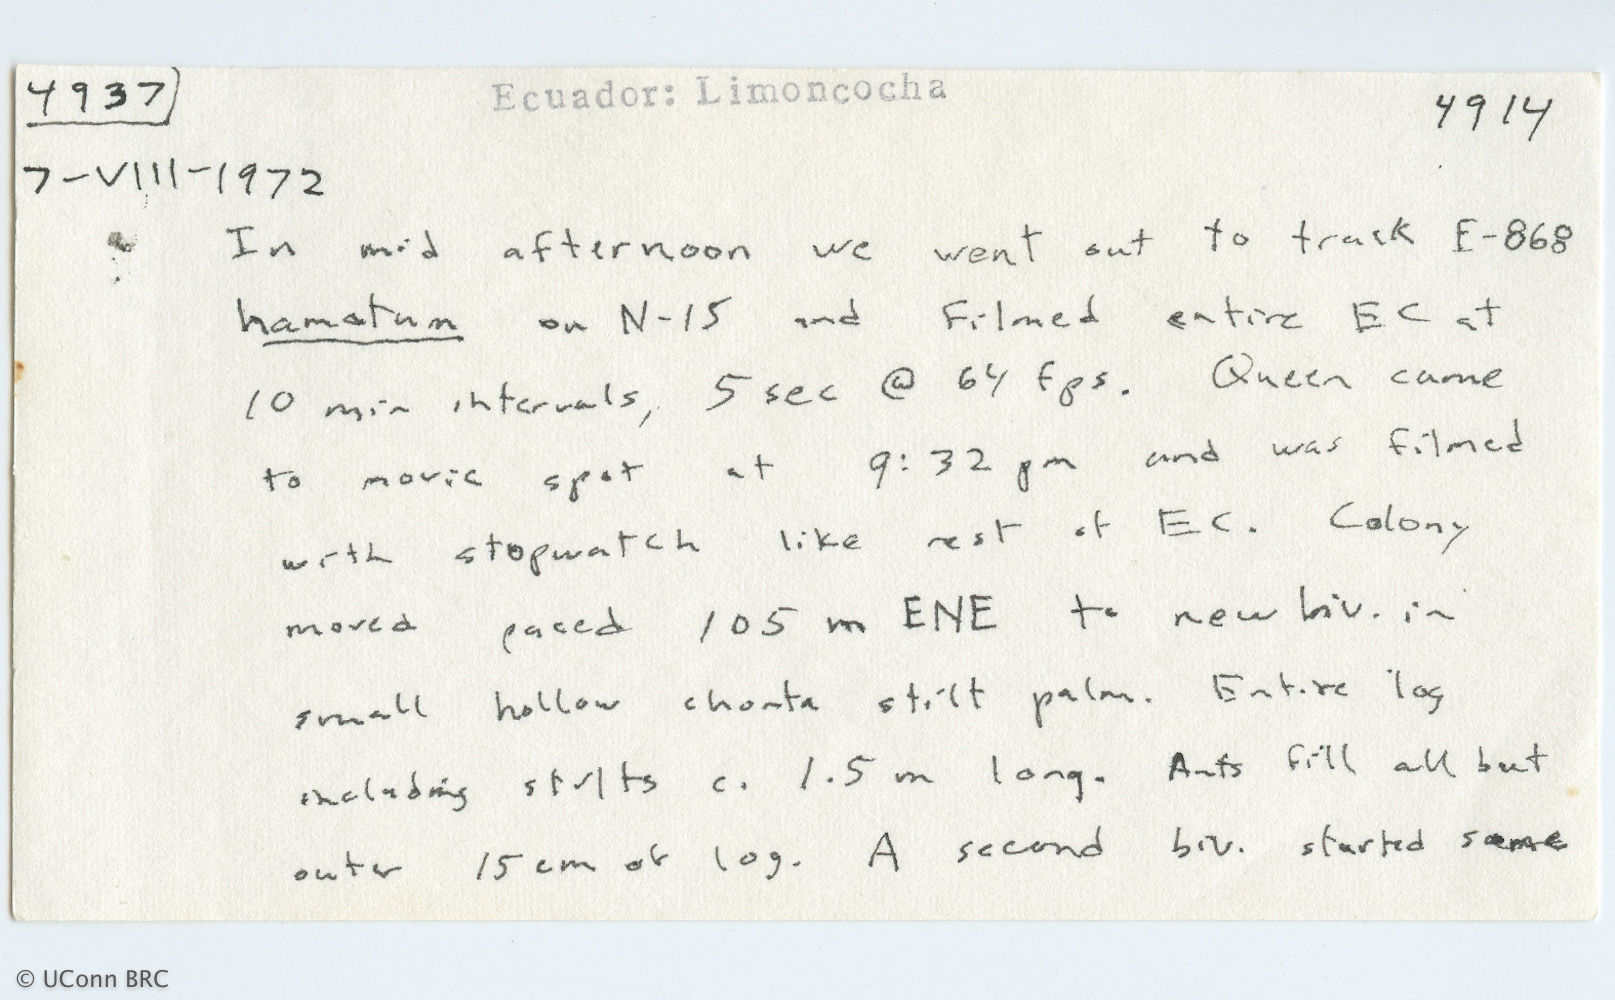 4937 Ecuador: Limoncocha 4914
7-VIII-1972
In mid afternoon we went out to track E-868
hamatum on N-15 and filmed entire EC at
10 min intervals, 5 sec @ 64 fps. Queen came
to movie spot at 9:32 pm and was filmed
with stopwatch like rest of EC. Colony
moved paced 105 m ENE to new biv. in
small hollow chonta stilt palm. Entire log
including stilts c. 1.5 m long. Ants fill all but
outer 15 cm of log. A second biv. started same
© UConn BRC